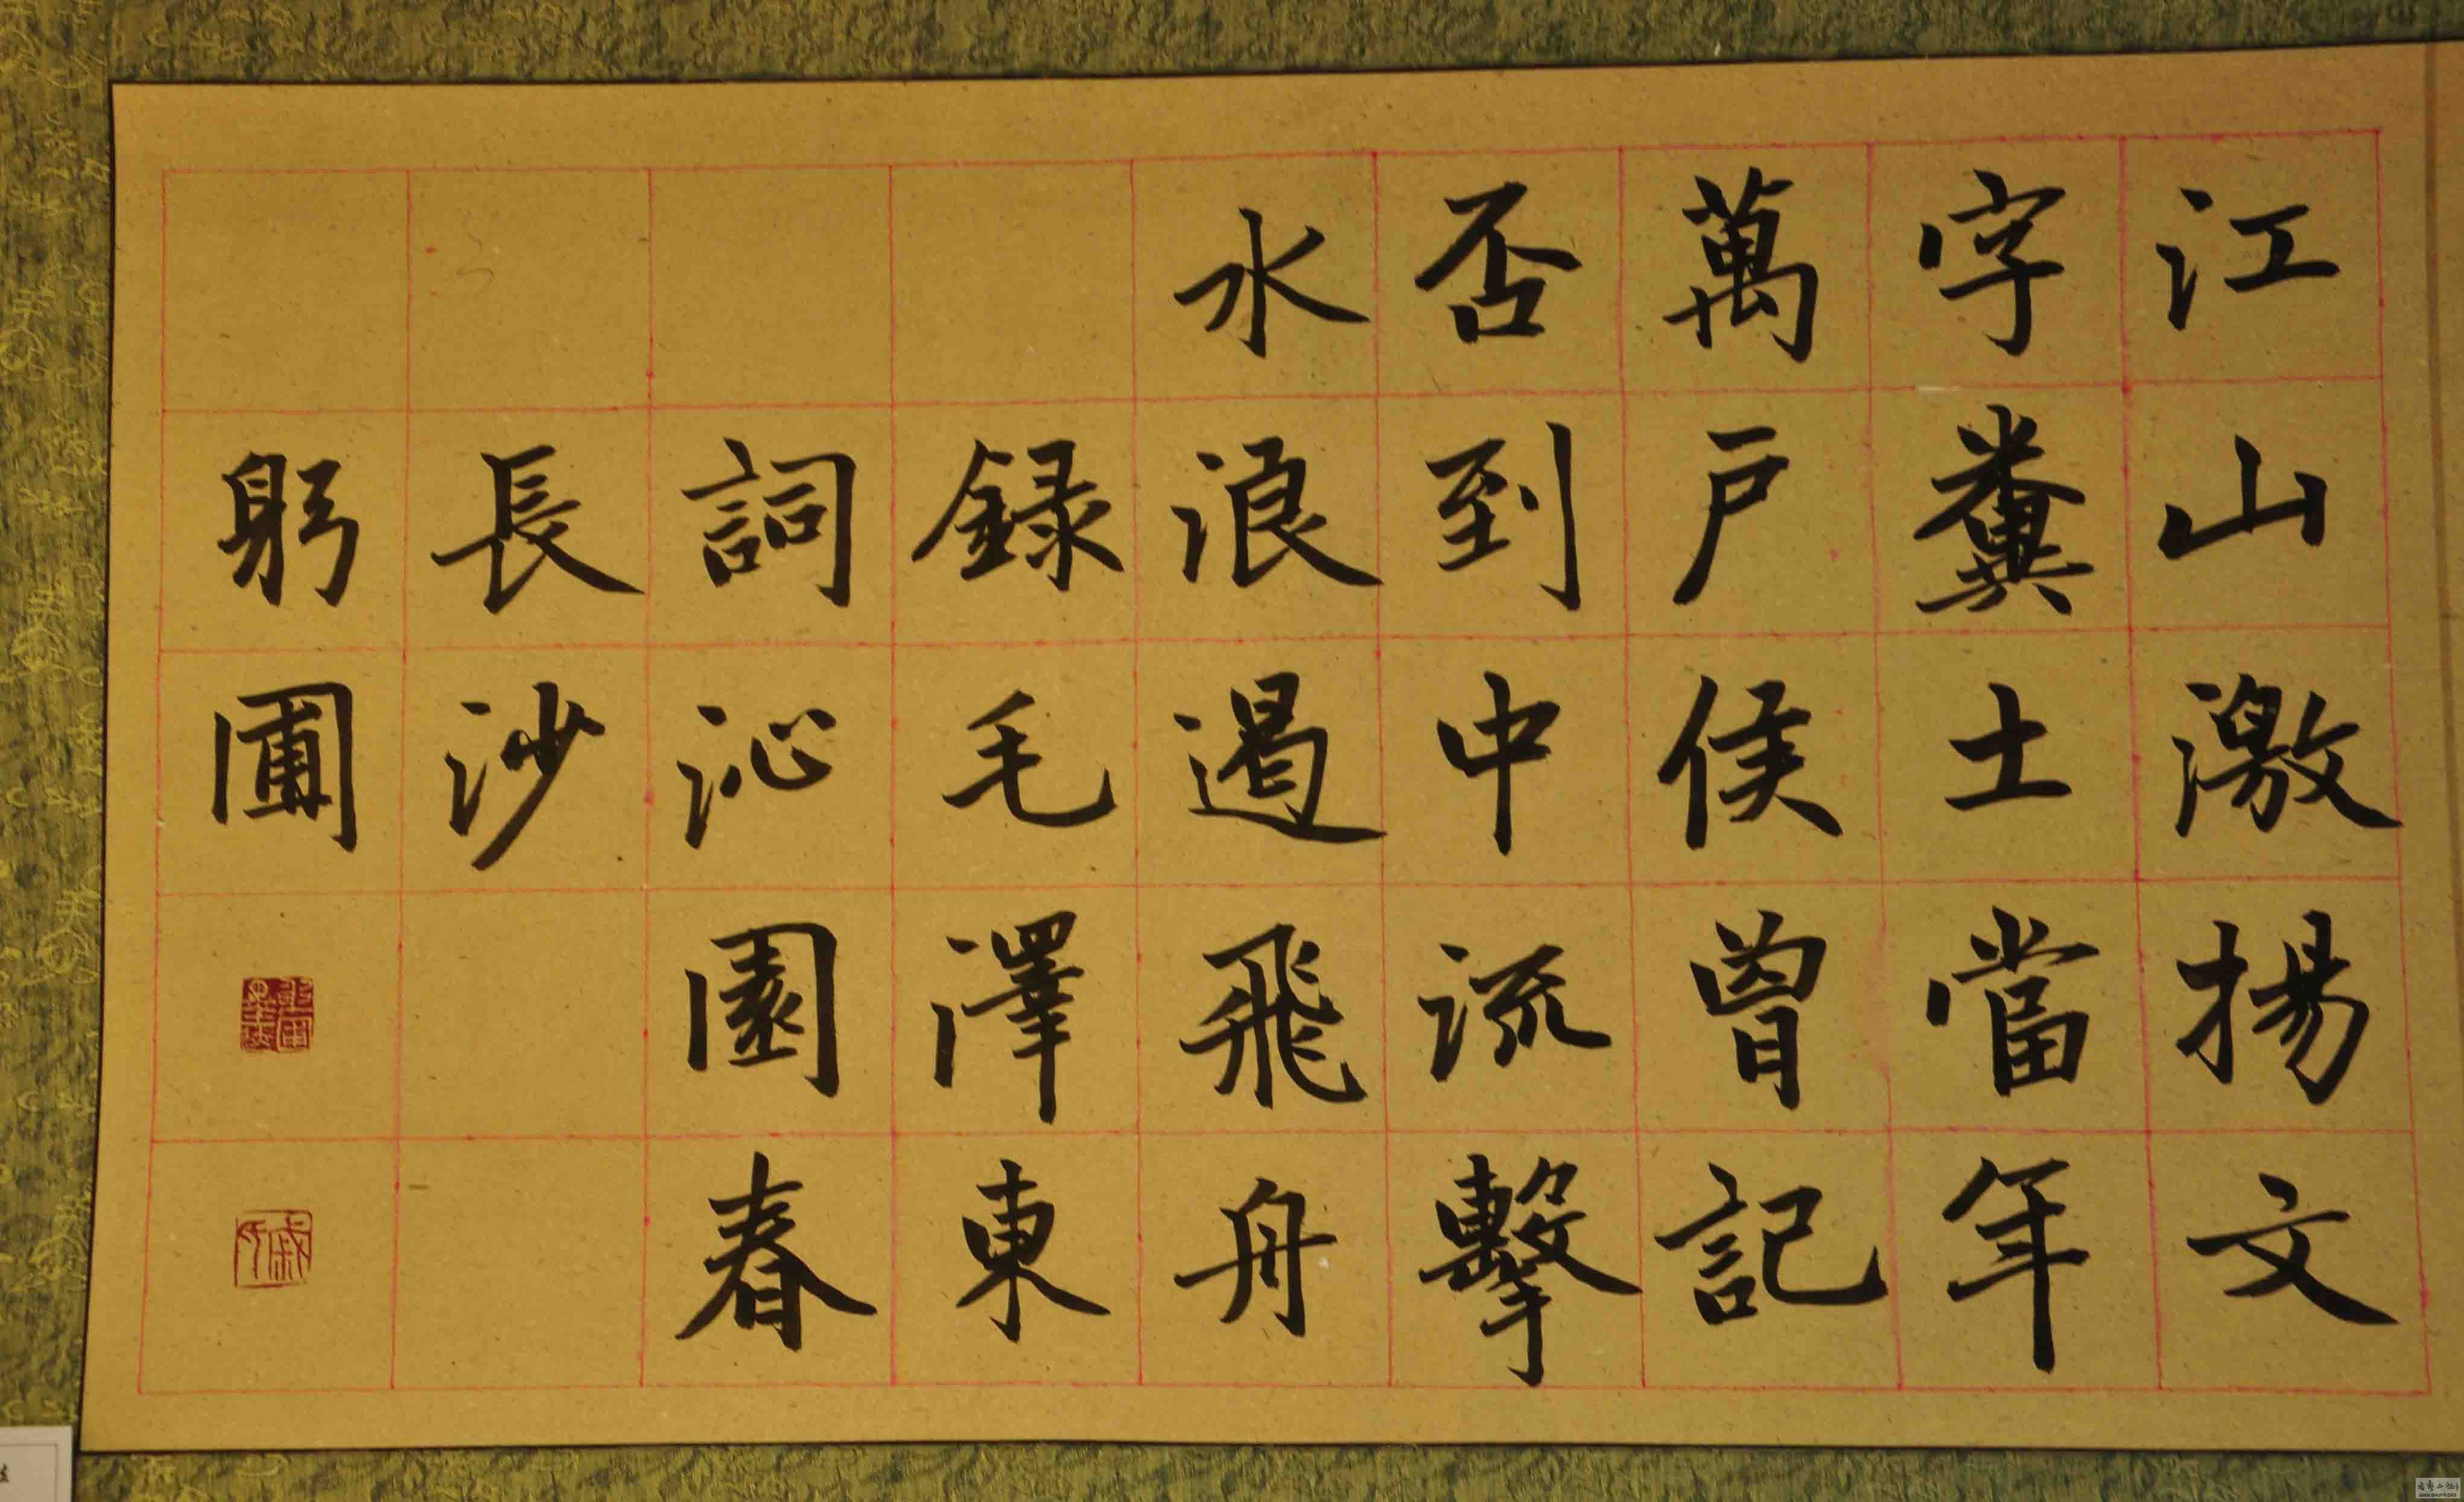 江山激揚文
字糞土當年
萬戶侯曾記
否到中流擊
水浪遏飛舟
録毛澤東
詞沁園春
長沙
躬圃
戚氏